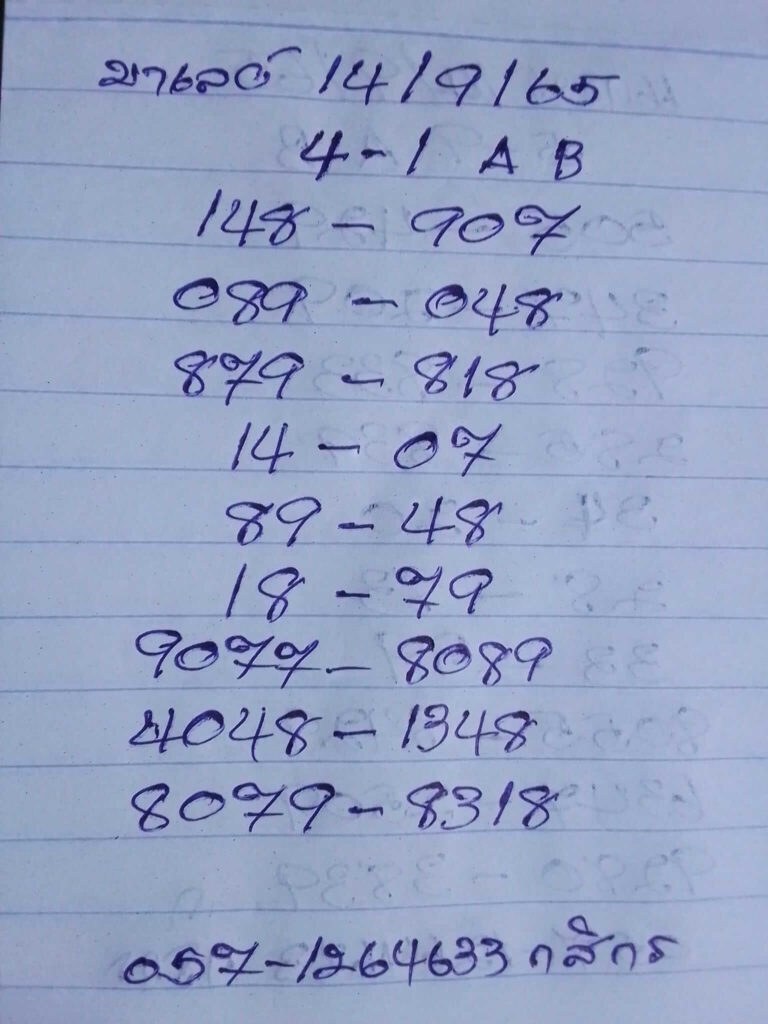 มาเลย์ 14/9/65
4-1 A B
148 - 907
089 - 048
879 - 818
14 - 07
89 - 48
18 - 79
9077 - 8089
4048 - 1348
8079 - 8318
057-1264633 กสิกร